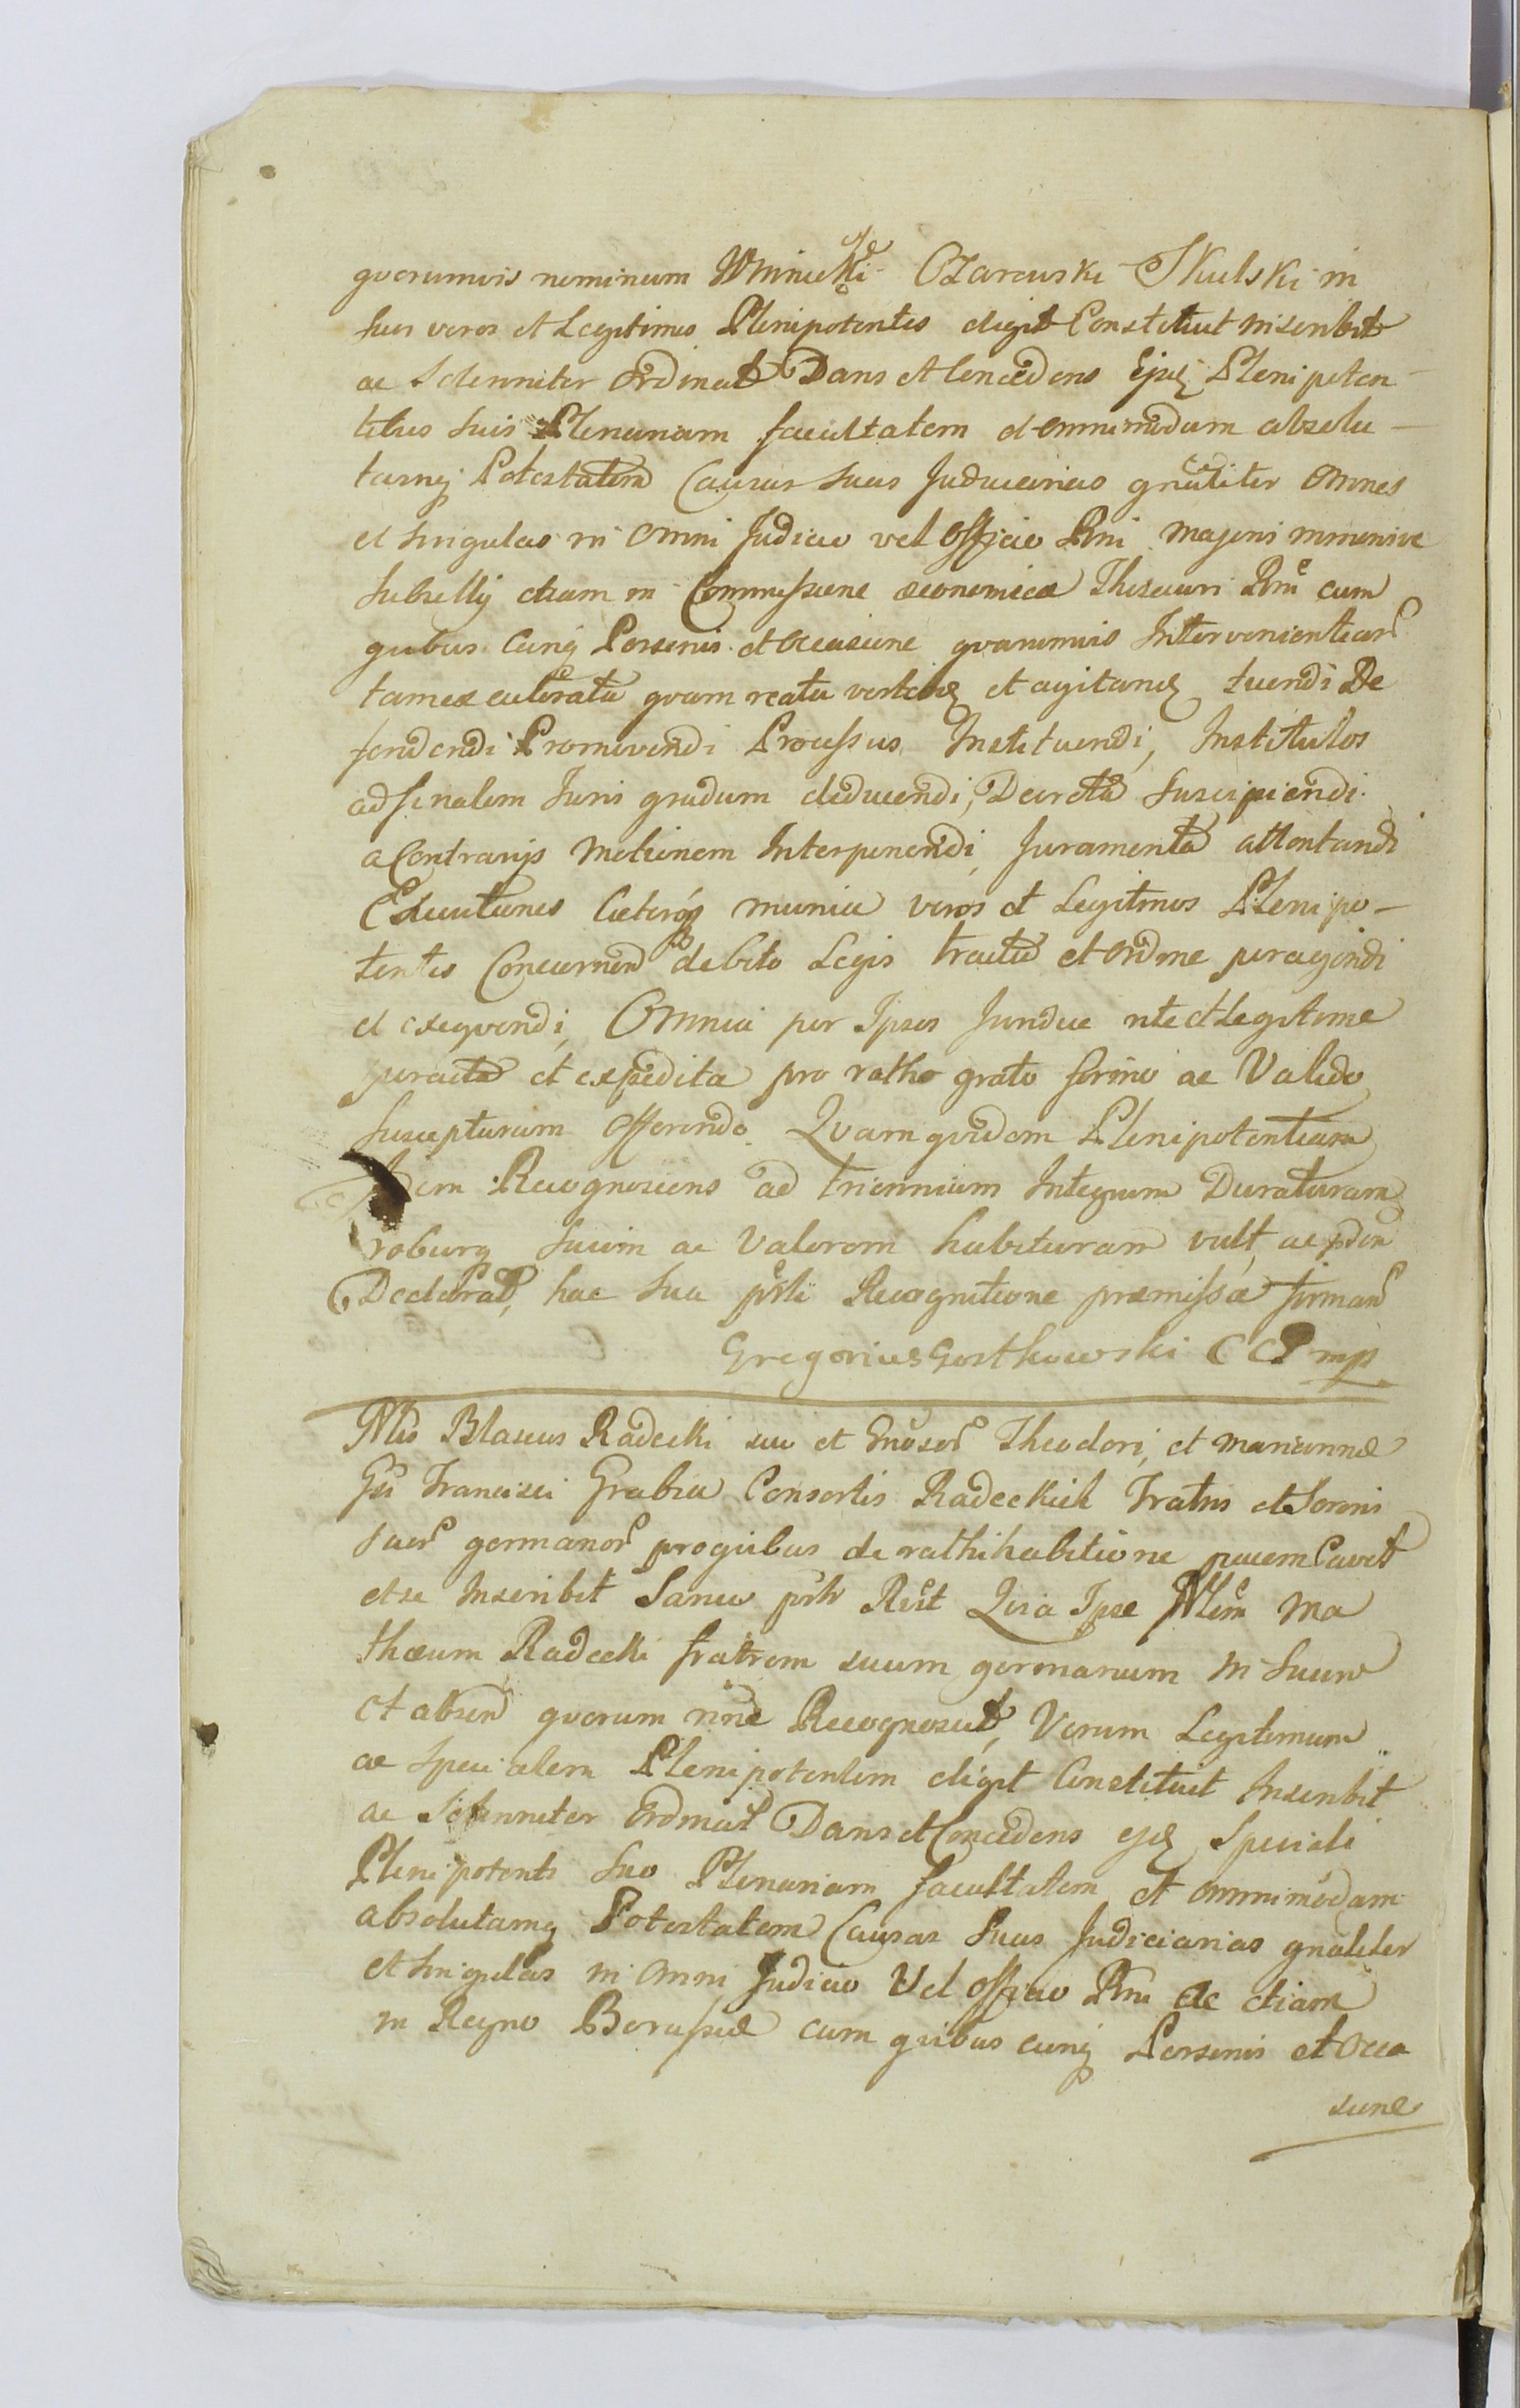 quorumvis nominum Czarcuski Skulski in
suos veros et Legitimos Plenipotentes eligit Constituit inscribit
ac Solenniter Ordinat Dans et Concedens Ejsq Plenipoten-
tibus suis Plenariam facultatem et omnimodam absolu-
tamq Potestatem Causas suas Judiciarias gnaliter omnes
et singulas in omni Judicio vel Officio Rni majoris minorisve
Subsellij etiam in Commissione oeconomica Thesauri Rni cum
quibus cunq Personis et occasione quarumvis Intervenientiar
tam ex actoratu quam reatu verten et agitan tuendi De
fendendi Promovendi Processus Instituendi, Institutos
ad finalem Juris gradum deducendi, Decreta Suscipiendi
a Contrarijs Motionem Interponendi, Juramenta attentandi
Executiones Caeteraq munia veros et Legitimos Plenipo-
tentes Concernen debito Legis tractu et ordine peragendi
et exequendi, Omnia per Ipsos Juridice rite et legitime
peracta et expedita pro ratho grato firmo ac Valido
suscepturum offerendo. Quam quidem Plenipotentiam
Idem Recognoscens ad triennium Integrum Duraturam
roburq suum ac Valorem habituram vult, ac pden
Declarat, hac sua prsti Recognitione praemissa firman
Gregorius Gostkowski CCP mp
Nlis Blasius Radecki suo et Gnosor Theodori, et Mariannae
Gsi Francisci Grabia Consortis Radeckich Fratris et Sororis
suor germanor proquibus de rathihabitione cavet
et se Inscribit Sanus prstr Rcit Quia Ipse Nlem Ma
thaeum Radecki fratrem suum germanum in suum
et absen quorum nne Recognoscit, Verum Legitimum
ac specialem Plenipotentem eligit Constituit Inscribit
ac Solenniter Ordinat Dans et Concedens ejdq Speciali
Plenipotenti suo Plenariam facultatem et omnimodam
absolutamq Potestatem Causas suas Judiciarias gnaliter
et singulas in omni Judicio Vel officio Rni ac etiam
in Regno Borussiae cum quibus cunq Personis et Occa
sione